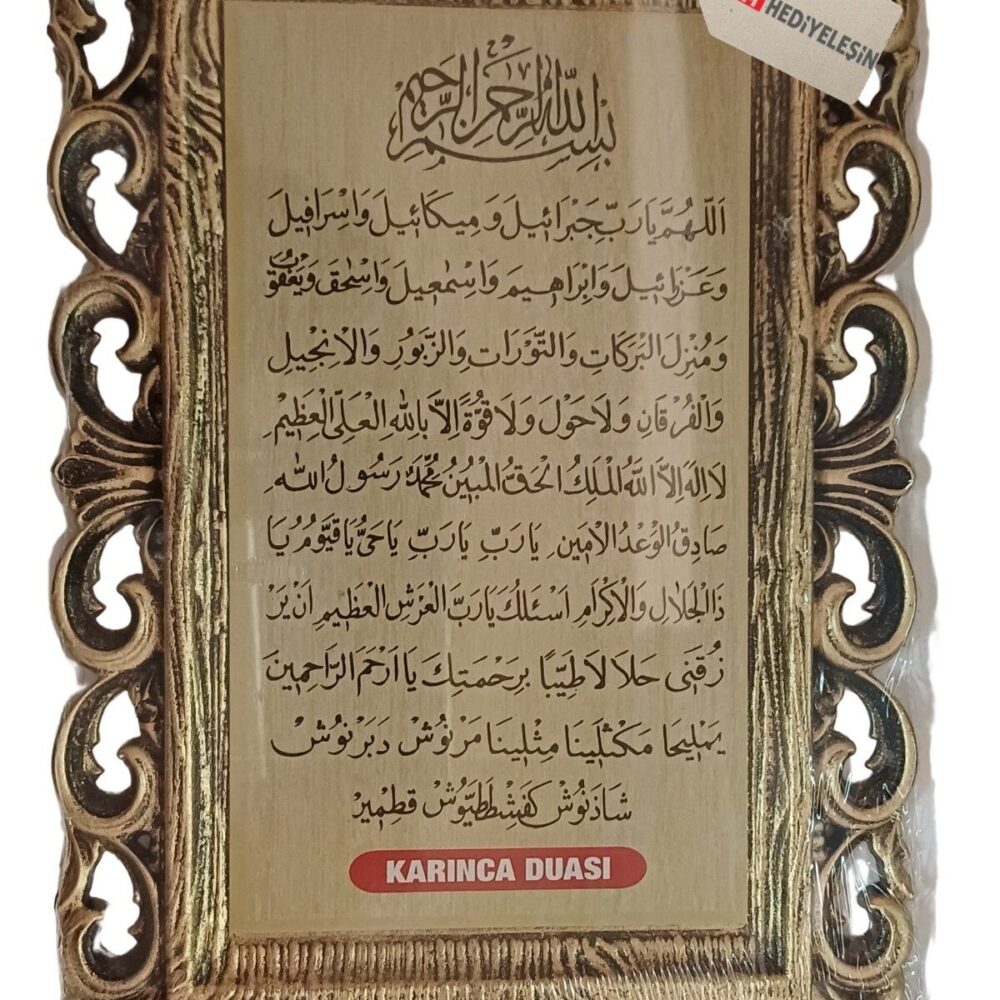 HEDİYELEŞİN
بِسْمِ اللّٰهِ الرَّحْمٰنِ الرَّحِيمِ
اَللّٰهُمَّ يَا رَبَّ جَبْرَائِيلَ وَمِيكَائِيلَ وَاِسْرَافِيلَ
وَعَزْرَائِيلَ وَاِبْرَاهِيمَ وَاِسْمٰعِيلَ وَاِسْحٰقَ وَيَعْقُوبَ
وَمُنْزِلَ الْبَرَكَاتِ وَالتَّوْرَاتِ وَالزَّبُورِ وَالْاِنْجِيلِ
وَالْفُرْقَانِ وَلَا حَوْلَ وَلَا قُوَّةَ اِلَّا بِاللّٰهِ الْعَلِىِّ الْعَظِيمِ.
لَا اِلٰهَ اِلَّا اللّٰهُ الْمَلِكُ الْحَقُّ الْمُبِينُ مُحَمَّدٌ رَسُولُ اللّٰهِ.
صَادِقُ الْوَعْدُ الْاَمِينِ. يَا رَبِّ يَا رَبِّ يَا حَىُّ يَا قَيُّومُ يَا
ذَا الْجَلَالِ وَالْاِكْرَامِ اَسْئَلُكَ يَا رَبَّ الْعَرْشِ الْعَظِيمِ اَنْ يَرْ
زُقَنِى حَلَالًا طَيِّبًا بِرَحْمَتِكَ يَا اَرْحَمَ الرَّاحِمِينَ
يَمْلِيحَا مَكْثَلِينَا مِثْلِينَا مَرْنُوشْ دَبَرْنُوشْ
شَاذَنُوشْ كَفَشْطَطَيُّوشْ قِطْمِيرْ
KARINCA DUASI